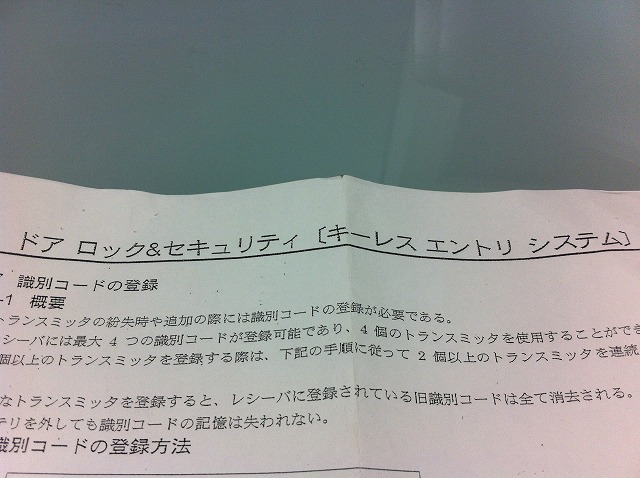 ドア ロック&セキュリティ〔キーレス エントリ システム〕
識別コードの登録
-1 概要
トランスミッタの紛失時や追加の際には識別コードの登録が必要である。
シーバには最大 4 つの識別コードが登録可能であり、4 個のトランスミッタを使用することができ
個以上のトランスミッタを登録する際は、下記の手順に従って 2 個以上のトランスミッタを連続
なトランスミッタを登録すると、レシーバに登録されている旧識別コードは全て消去される。
テリを外しても識別コードの記憶は失われない。
識別コードの登録方法